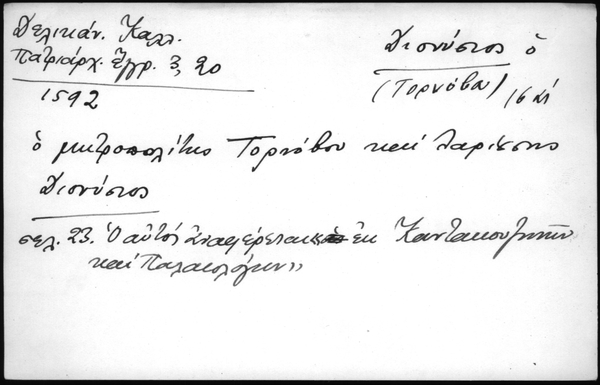 Δελικάν. Καλλ.
Πατριάρχ. Ἔγγρ. 3, 20
1592
Διονύσιος ὁ
(Τορνόβου) 16 αἰ
ὁ μητροπολίτης Τορνόβου καὶ Λαρίσσης
Διονύσιος
σελ. 23. Ὁ αὐτὸς ἀναφέρεται « ἐκ Καντακουζηνῶν
καὶ Παλαιολόγων»